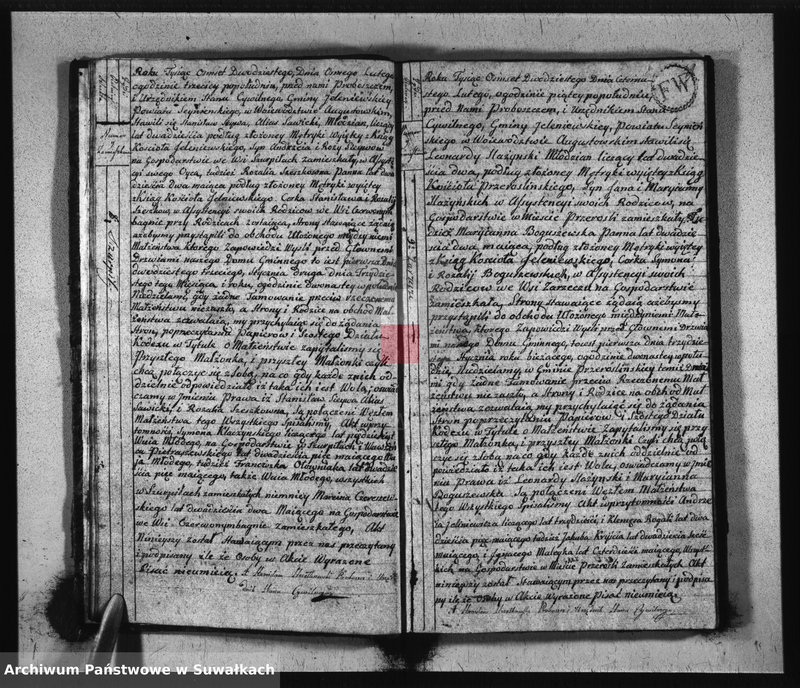 Roku Tysiąc Osmset Dwudziestego, Dnia Osmego Lutego
ogodzinie trzeciey popołudniu, przed nami Proboszczem,
i Urzędnikiem Stanu Cywilnego Gminy Jeleniewskiey
Powiatu Seynenskiego, w Woiewodztwie Augustowskim,
Stawili się Stanisław Supa, Alias Sawicki, Młodzian, liczący
lat dwadzieścia podług złożoney Metryki Wyiętey z Xiąg
Kościoła Jeleniewskiego, Syn Andrzeia i Rozy
na Gospodarstwie we Wsi Szurpiłach zamieszkały, w Assysten
gi swego Oyca, tudziez Rozalia Szeszkowna Panna lat dwa
dzieścia dwa maiąca podług złożoney Metryki wyiętey
z Xiąg Kościoła Jeleniewskiego Corka Stanisława i Rozalii
Szeszkow, w Assystencyi swoich Rodzicow we Wsi Czerwonym
bagnie przy Rodzicach zostaiąca, Strony stawaiące żądaią
ażebyśmy przystąpili do obchodu Ułożonego między niemi
Małżeństwa ktorego Zapowiedzi Wyszły przed Głownemi
Drzwiami naszego Domu Gminnego to iest pierwsza Dnia
dwudziestego trzeciego, Stycznia druga dnia Trzydzie
stego tego Miesiąca i roku, ogodzinie dwunastey w południe
Małżeństwu niezaszło, a Strony i Rodzice na obchod Mał
żeństwa zezwalaią, my przychylaiąc się do żądania
Stron, poprzeczytaniu Papierow i Szostego Działu
Kodexu w Tytule o Małżeństwie zapytaliśmy się
Przyszłego Małżonka, i przyszłey Małżonki czyli
chcą połączyc się z sobą, na co gdy każde znich od
dzielnie odpowiedziało iż taka ich iest Wola; oswiad
czamy w Jmieniu Prawa, iż Stanisław Supa Alias
Sawicki, i Rozalia Szeszkowna, Są połączeni Węzłem
Małżeństwa tego Wszystkiego Spisaliśmy, Akt wprzy
tomności, Symona
Wuia Młodego, na Gospodarstwie w Szurpiłach i
lat dwadzieścia pięc maiącego
ia Młodego, tudziez Franciszka lat dwadzie
ścia pięc maiącego, także Wuia Młodego, wszyskich
w Szurpiłach zamieszkałych niemniey Marcina
skiego lat dwadzieścia dwa Maiącego na Gospodarstwie
we Wsi Czerwonymbagnie zamieszkałego, Akt
Ninieyszy został Stawaiącym przez nas przeczytany
i podpisany zle że Osoby w Akcie Wyrażone
Pisac nieumieią
Stanu Cywilnego
FW
Roku Tysiąc Osmset Dwudziestego Dnia
stego Lutego, ogodzinie piątey popołudniu,
przed Nami Proboszczem, i Urzędnikiem Stanu
Cywilnego, Gminy Jeleniewskiey, Powiatu Seynen
skiego w Woiewodztwie Augustowskim stawili się
Leonardy Stażynski Młodzian liczący lat dwadzie
ścia dwa, podług złożoney Metryki wyiętey z Xiąg
Kościoła Przeroslinskiego, Syn Jana i Maryanny
Stażynskich w Assystencyi swoich Rodzicow, na
Gospodarstwie w Mieście Przerosli zamieszkały, Tu
dziez Maryianna Boguszewska Panna lat dwadzie
ścia dwa maiąca, podług złożoney Metryki wyiętey
z Xiąg Kościoła Jeleniewskiego, Corka Symona
i Rozalij Boguszewskich, w Assystencyi swoich
Rodzicow we Wsi Zarzecze na Gospodarstwie
zamieszkała, Strony Stawaiące żądaią ażebyśmy
przystąpili do obchodu Ułożonego między niemi Mał
żeństwa, ktorego Zapowiedzi Wyszły przed Głownemi Drzwia
mi naszego Domu Gminnego, to iest pierwsza dnia trzydzie
stego Stycznia roku bieżącego, ogodzinie dwunastey w połu
mi gdy żadne Tamowanie przeciw Rzeczonemu Mał
żeństwu niezaszło, a Strony i Rodzice na obchod Mał
żeństwa zezwalaią my przychylaiąc się do żądania
Stron poprzeczytaniu Papierow i Szostego Działu
Kodexu w Tytule o Małżeństwie Zapytaliśmy się przy
szłego Małżonka, i przyszłey Małżonki Czyli chcą połą
czyc się z sobą na co gdy każde znich oddzielnie od
powiedziało iż taka ich iest Wola, oswiadczamy w Jmie
niu Prawa iż Leonardy Stażynski i Maryianna
Boguszewska Są połączeni Węzłem Małżeństwa
tego Wszystkiego Spisaliśmy Akt wprzytomności Andrze
ia Jelinewicza liczącego lat trzydzieści, i Klemensa Rogali lat dwa
dzieścia pięc maiącego tudziez Jakuba lat dwadzieścia sześć
maiącego, i Jgnacego lat Czterdzieści maiącego, Wszyst
kich na Gospodarstwie w Mieście Przerosli Zamieszkałych Akt
ninieyszy został Stawaiącym przez nas przeczytany i podpisa
ny zle że Osoby w Akcie Wyrażone Pisac nieumieią
Stanu Cywilnego
Archiwum Państwowe w Suwałkach